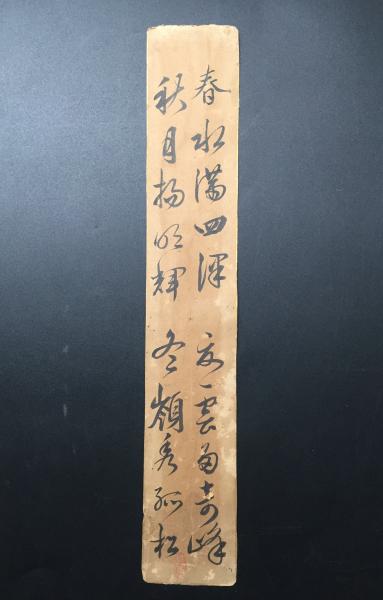 春水滿四澤 夏雲多奇峰
秋月揚明輝 冬嶺秀孤松